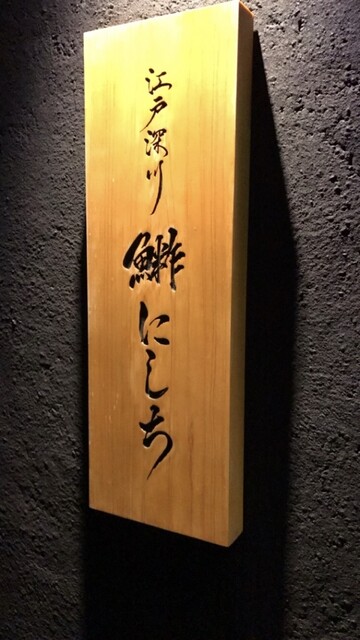 江戸深川 鮓 にしち